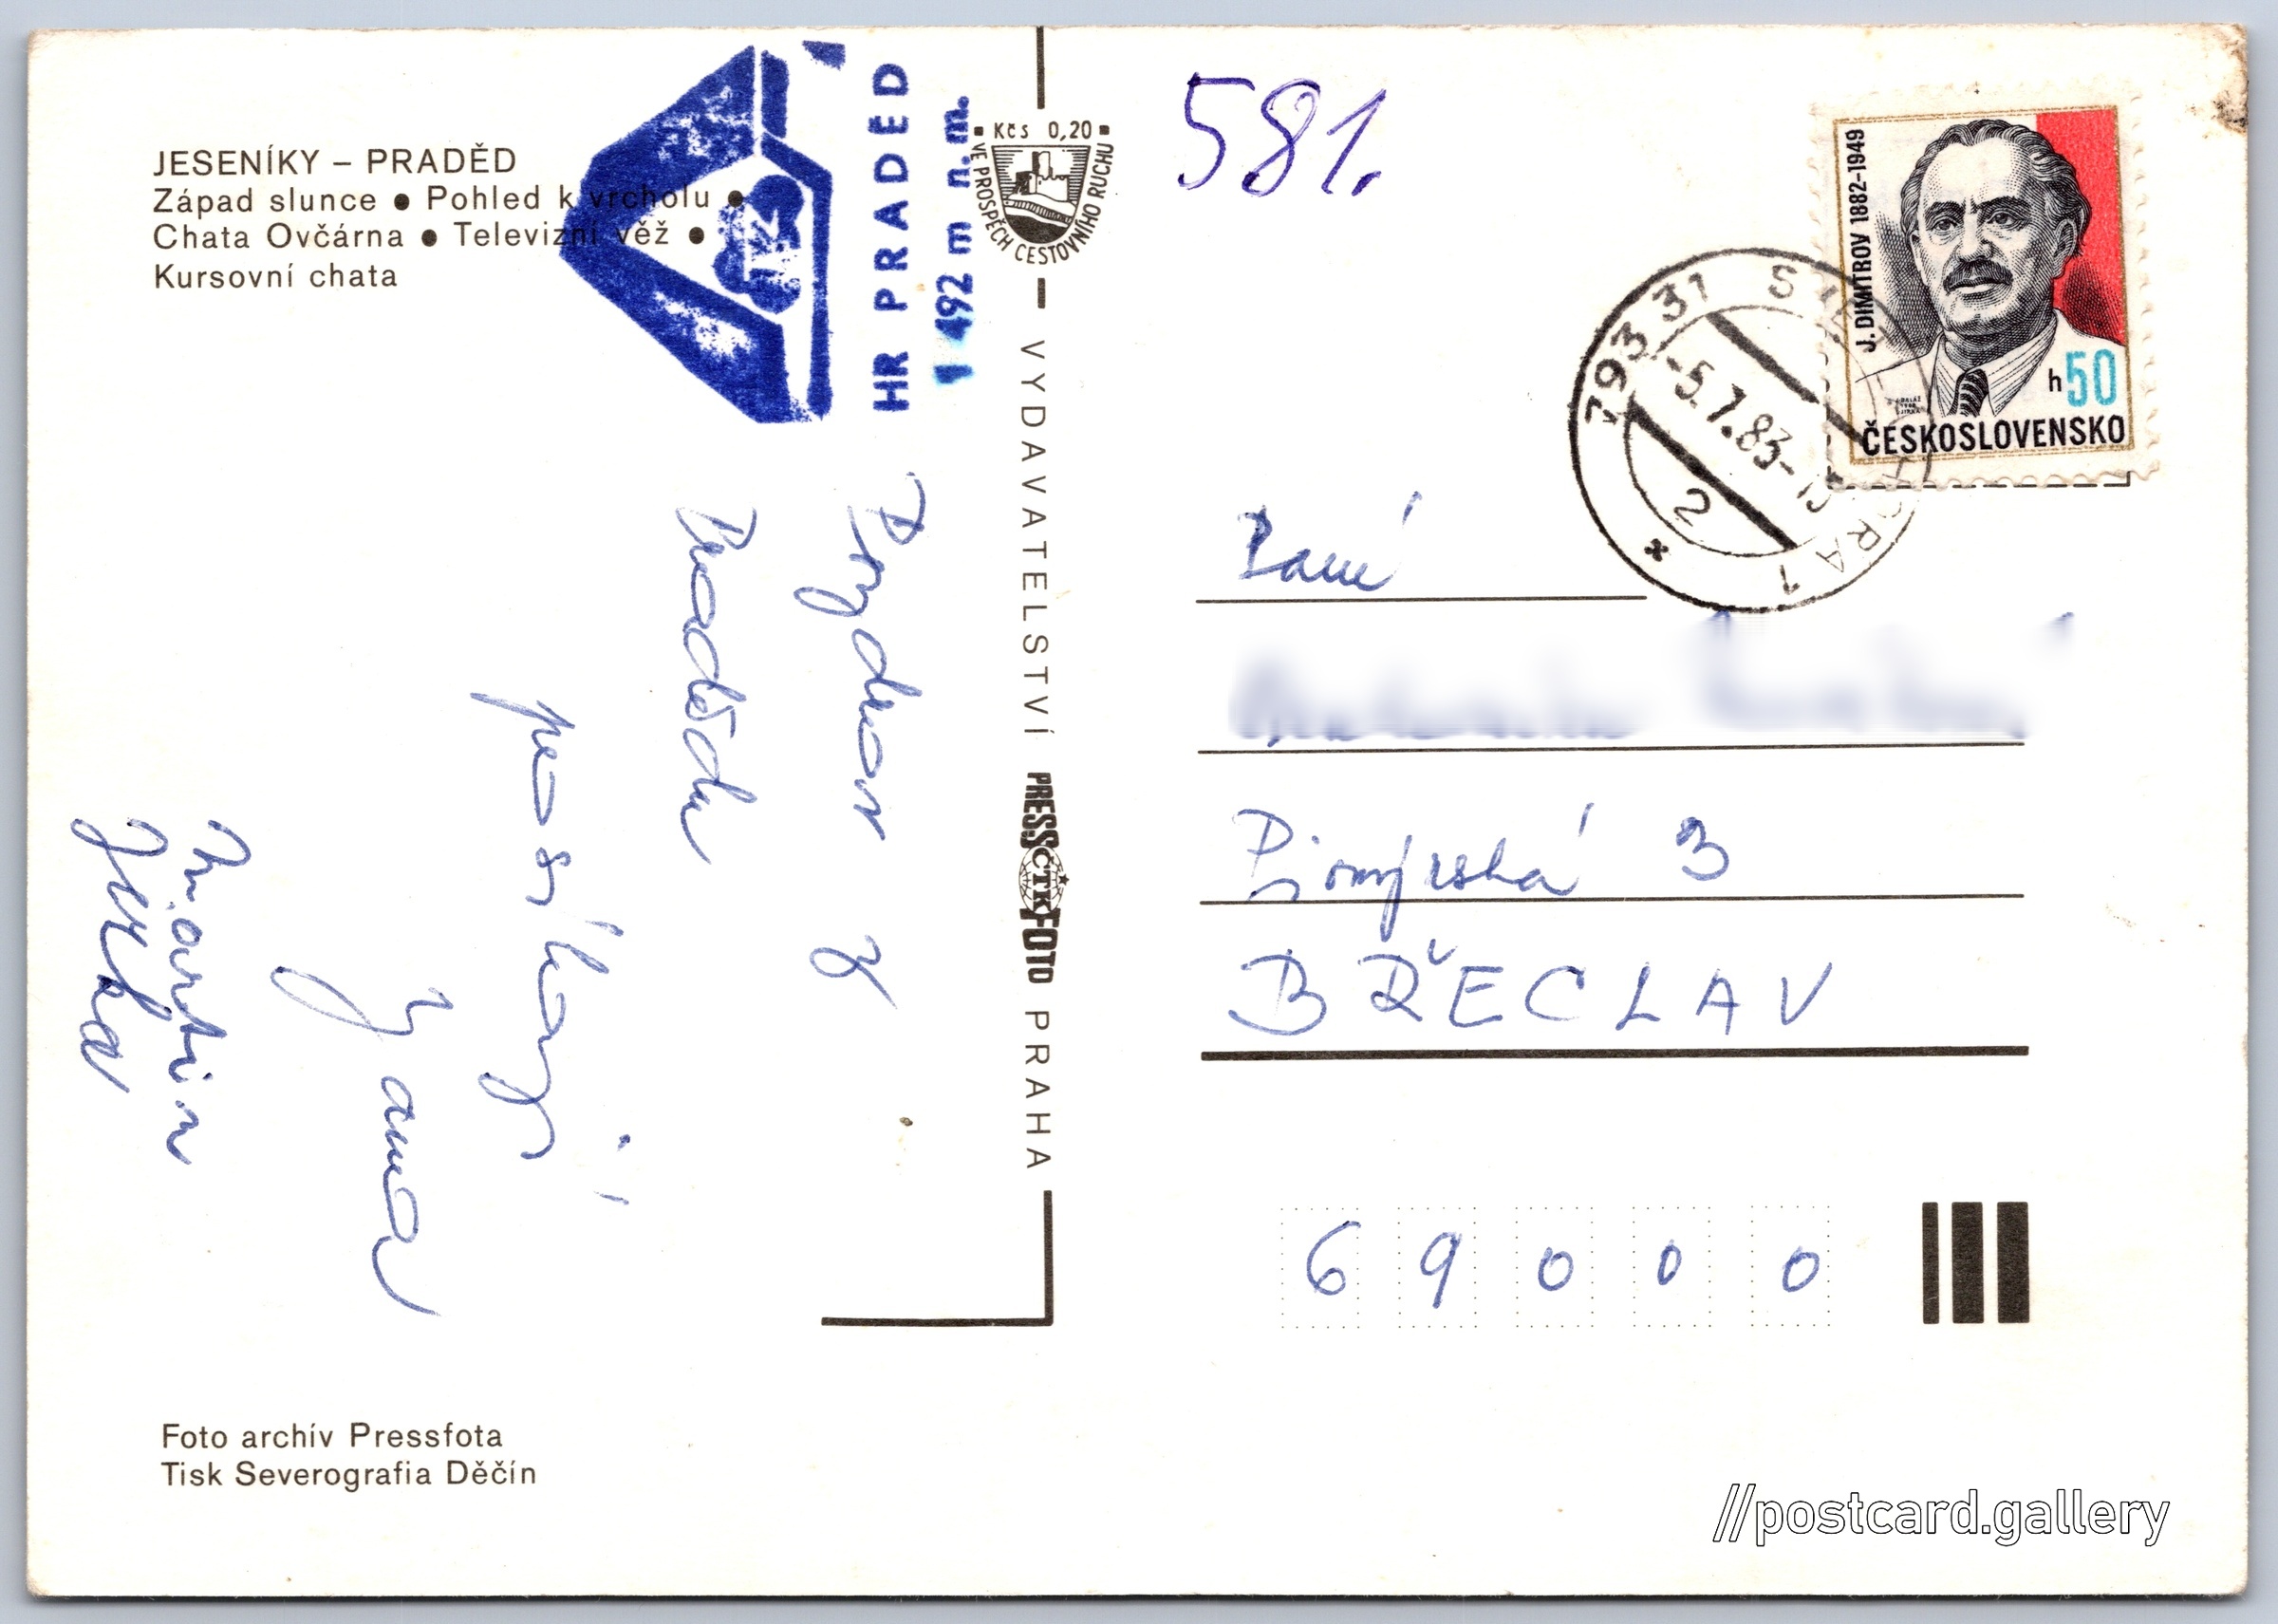 JESENÍKY – PRADĚD
Západ slunce ● Pohled k vrcholu ●
Chata Ovčárna ● Televizní věž ●
Kursovní chata
HR PRADĚD
1 492 m n. m.
Kčs 0,20
VE PROSPĚCH CESTOVNÍHO RUCHU
VYDAVATELSTVÍ PRESSFOTO PRAHA
ČTK
581.
J. DIMITROV 1882–1949
h50
ČESKOSLOVENSKO
793 31
-5.7.83-
2
*
Pozdrav z
Pradědu
posílají
Jana
Martin
Jirka
Paní
Pionýrská 3
BŘECLAV
69000
Foto archív Pressfota
Tisk Severografia Děčín
//postcard.gallery